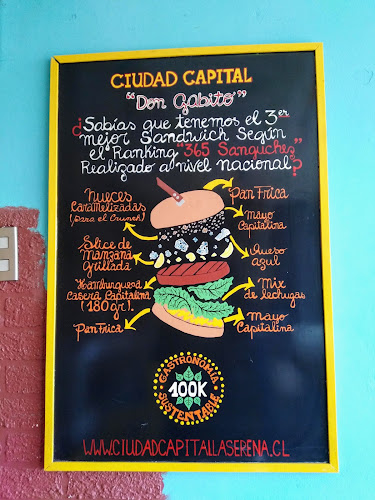 CIUDAD CAPITAL
"Don Gabito"
¿Sabías que tenemos el 3er
mejor Sandwich Según
el Ranking "365 Sanguches"
Realizado al nivel Nacional?
Nueces
Caramelizadas
(para el Crunch)
Slice de
manzana
grillada
Hamburguesa
Casera Capitalina
(180 gr).
Pan Frica
Pan Frica
Mayo
Capitalina
Queso
azul
Mix
de lechugas
Mayo
Capitalina
GASTRONOMIA
100K
SUSTENTABLE
WWW.CIUDADCAPITALLASERENA.CL